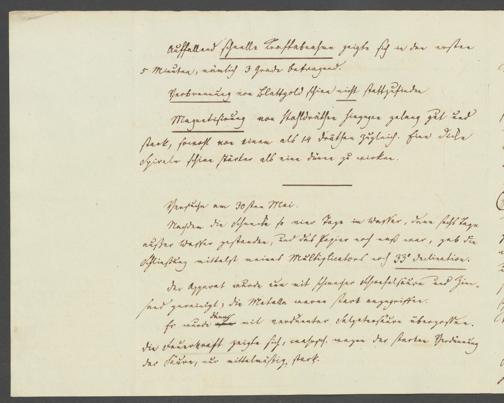 Auffallend schnelle Kraftabnahme zeigte sich in den ersten
5 Minuten, nämlich 3 Grade betragend.
Verbrennung von Blattgold schien nicht stattzufinden
Magnetisirung von Stahldräthen hingegen gelang gut und
stark, sowohl von einem als 14 Dräthen zugleich. Eine dicke
Spirale schien stärker als eine dünne zu wirken.
Versuche am 30sten Mai.
Nachdem die Scheide so vier Tage im Wasser, dann sechs Tage
außer Wasser gestanden, und das Papier noch naß war, gab die
Schließung mittelst meines Multiplicators noch 33° Declination.
Der Apparat wurde nun mit schwacher Schwefelsäure und
sand gereinigt; die Metalle waren stark angegriffen.
Er wurde mit verdünnter Salpetersäure übergossen.
Die Feuerkraft zeigte sich, wegen der starken Verdünnung
der Säure, nur mittelmäßig stark.